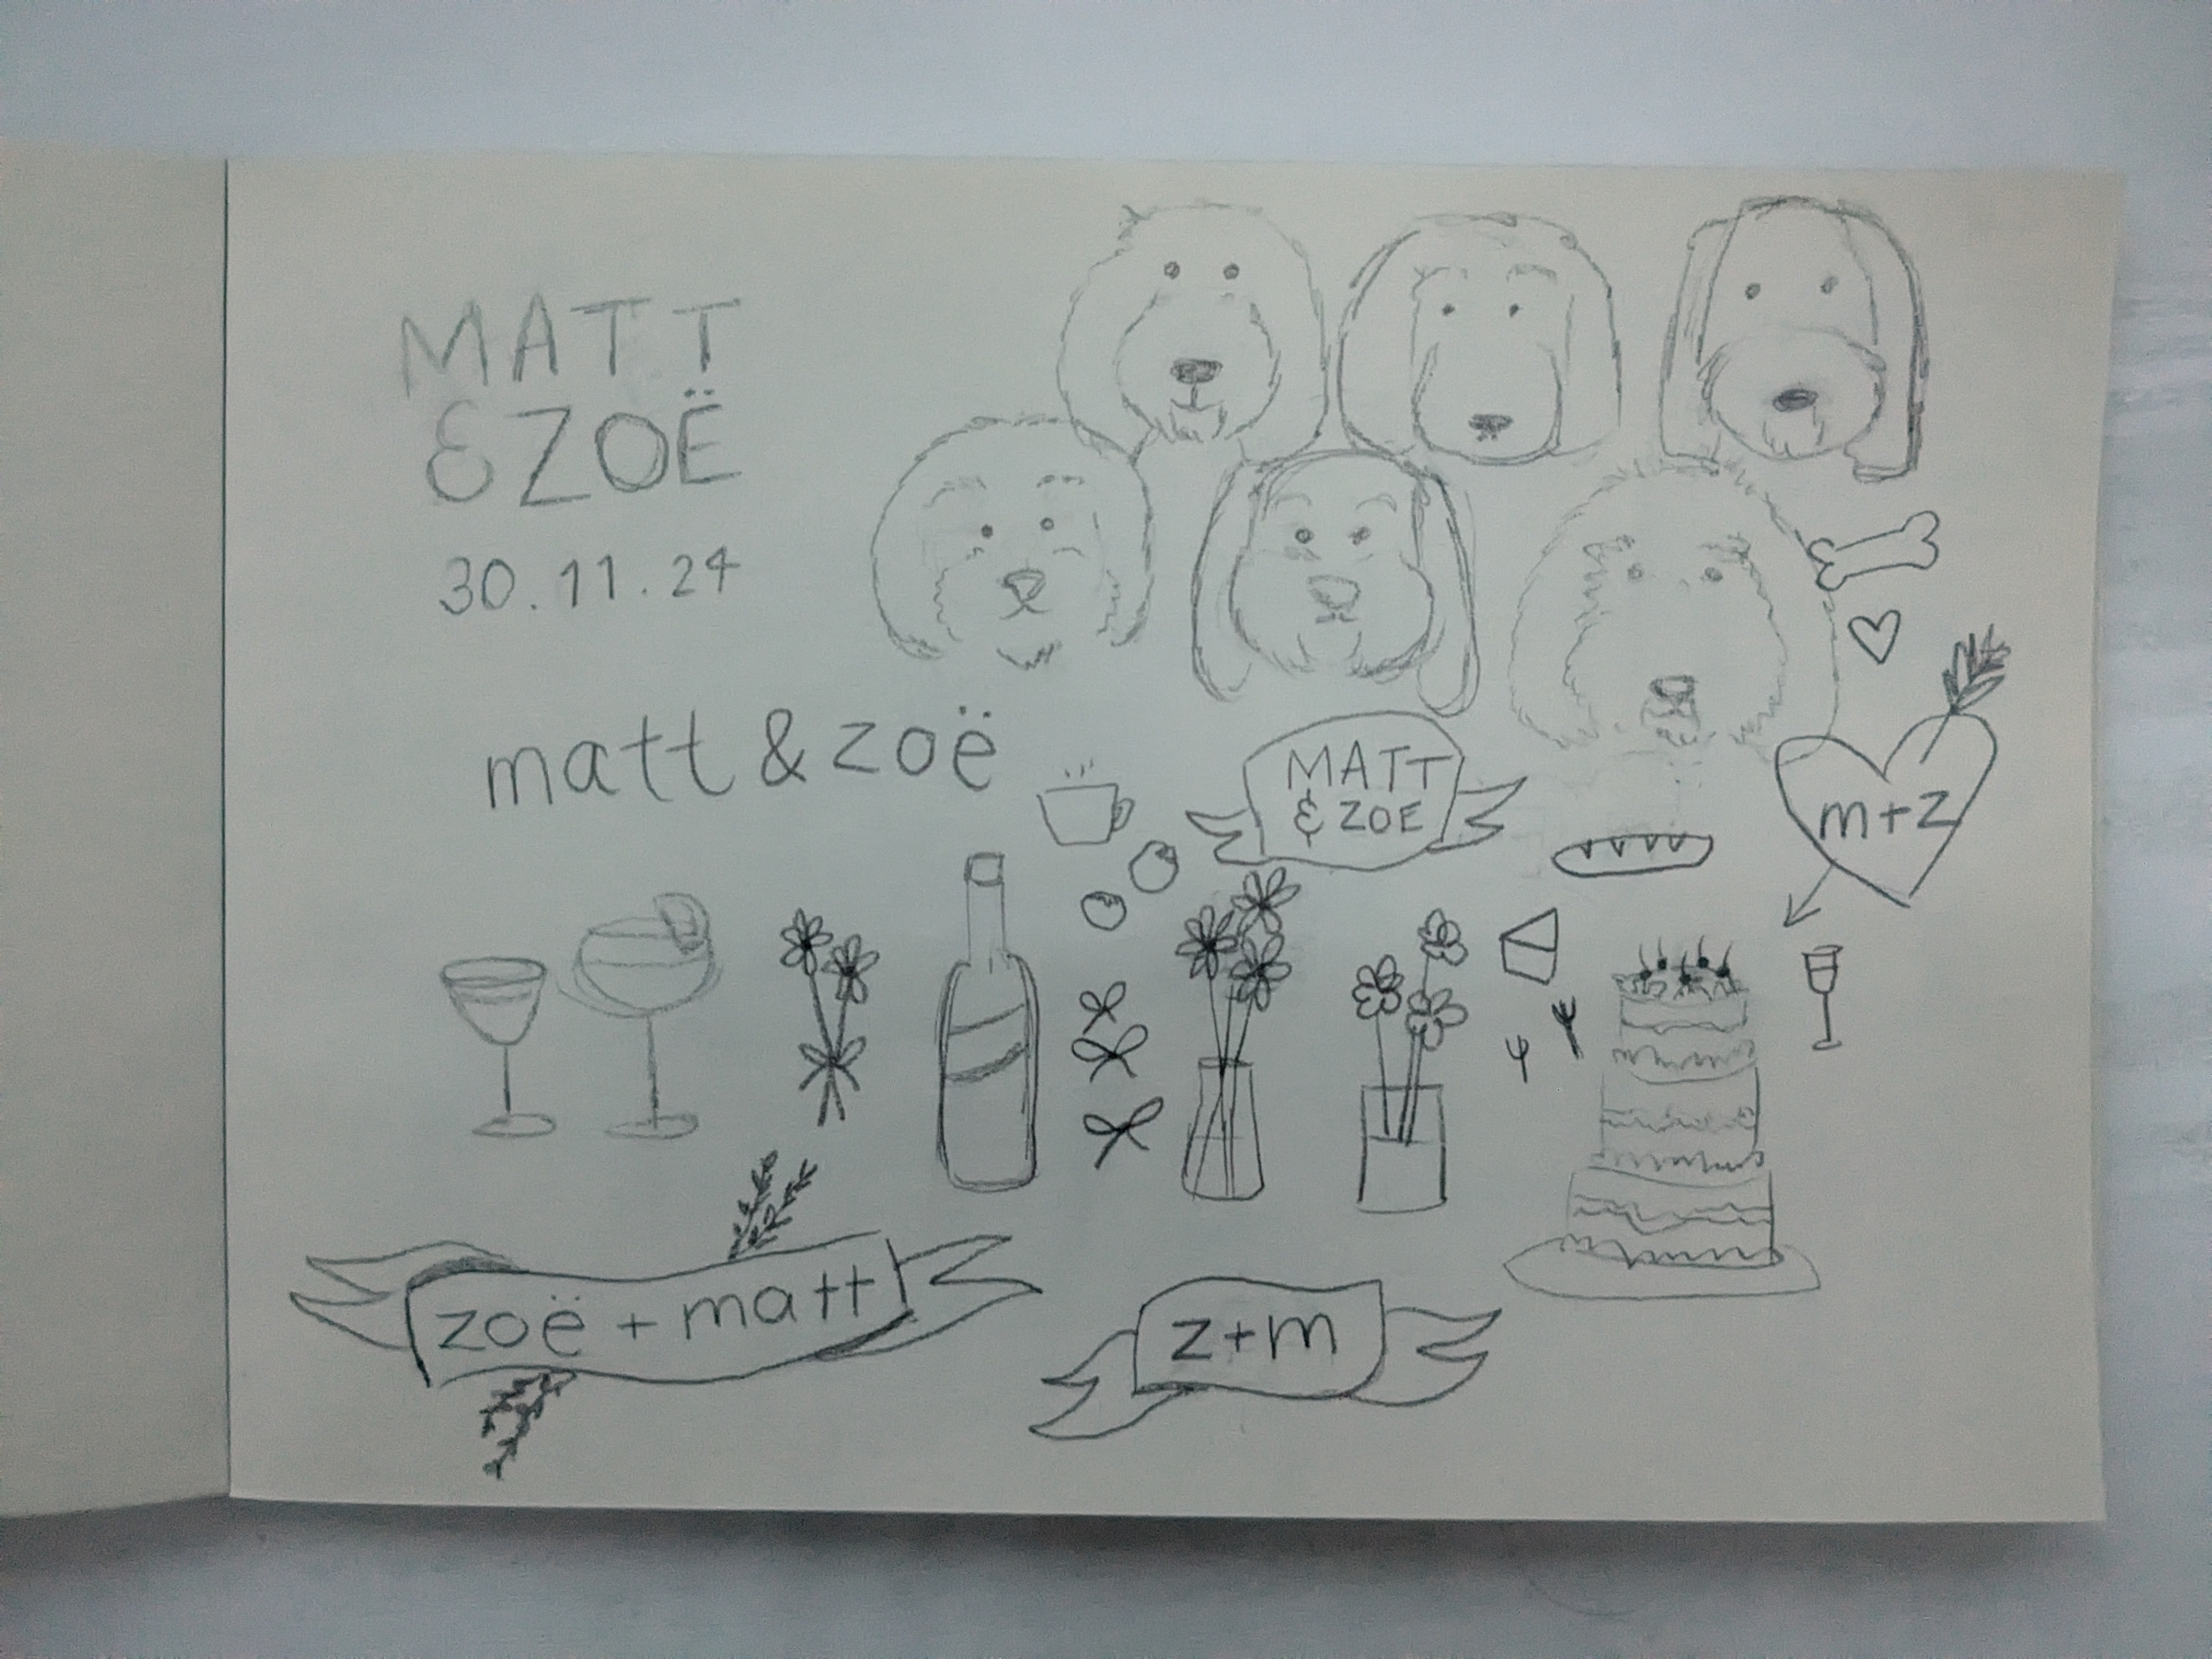 MATT
& ZOË
30.11.24
matt & zoë
MATT
& ZOE
m+z
zoë + matt
z+m